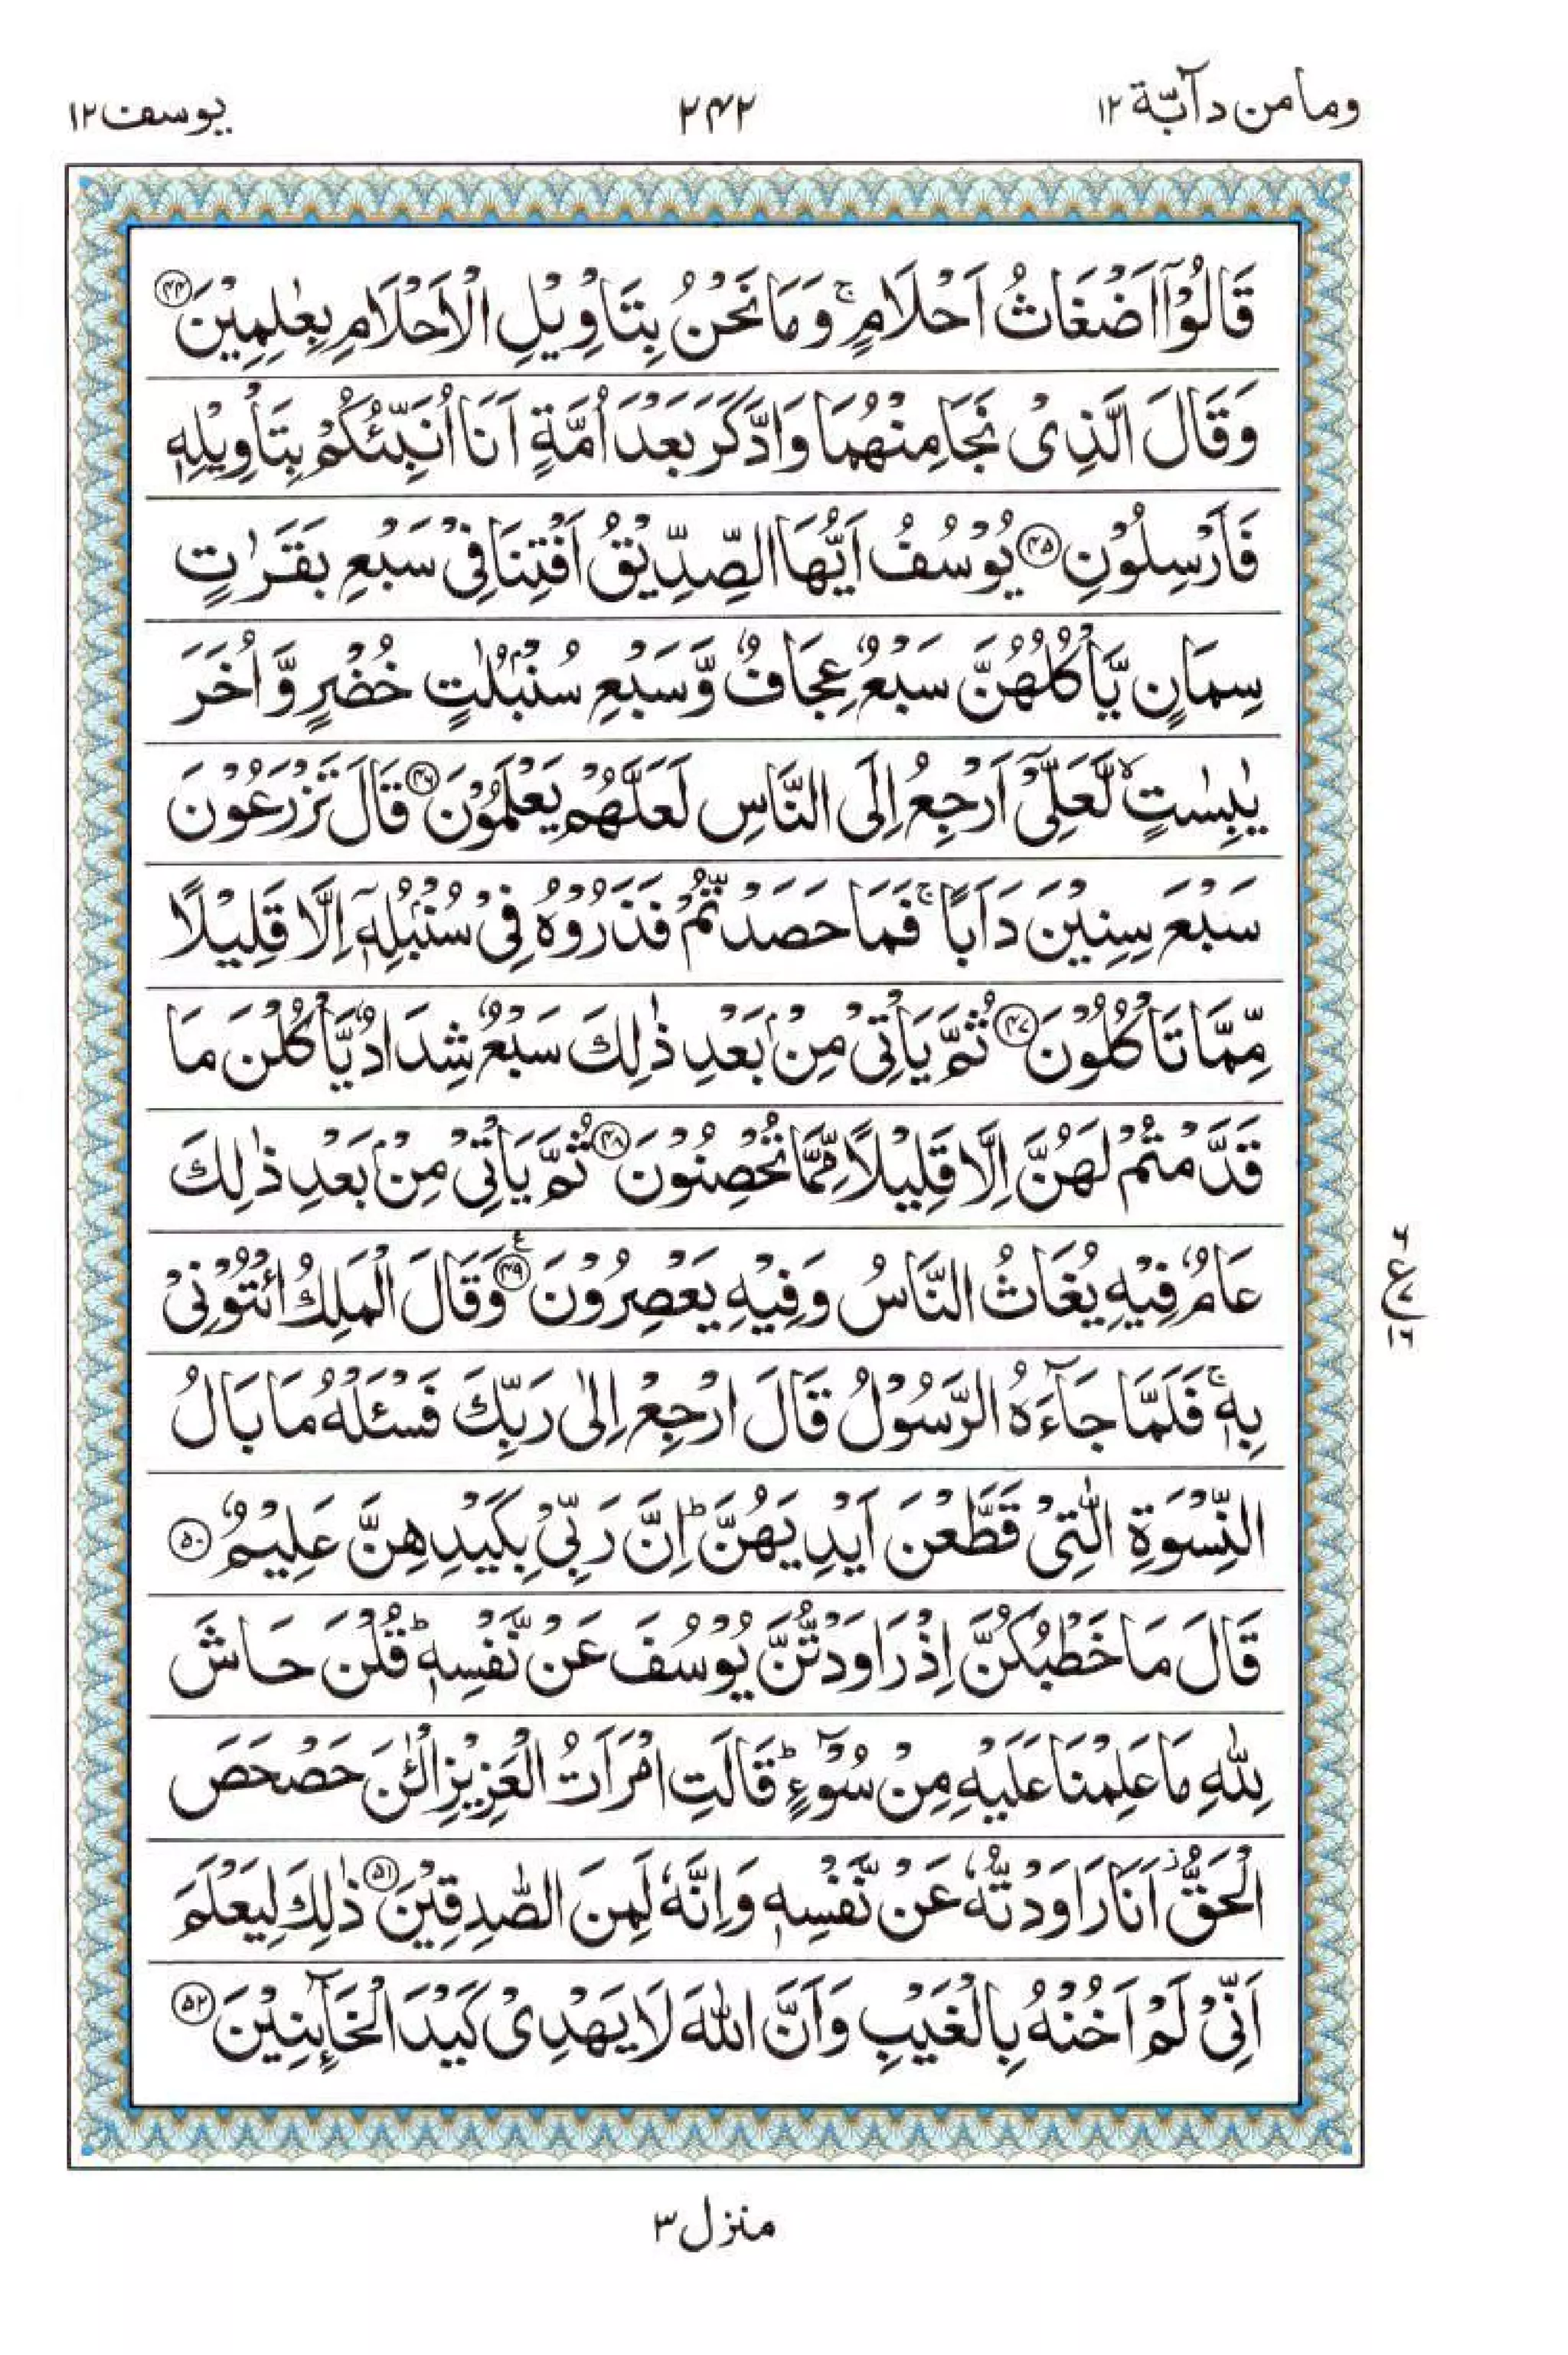 وما من دآبّة ١٢
٢٤٢
يوسف ١٢
قَالُوْۤا اَضْغَاثُ اَحْلَامٍ ۚ وَمَا نَحْنُ بِتَاْوِيْلِ الْاَحْلَامِ بِعٰلِمِيْنَ ﴿۴۴﴾
وَقَالَ الَّذِىْ نَجَا مِنْهُمَا وَادَّكَرَ بَعْدَ اُمَّةٍ اَنَا اُنَبِّئُكُمْ بِتَاْوِيْلِهٖ
فَاَرْسِلُوْنِ ﴿۴۵﴾ يُوْسُفُ اَيُّهَا الصِّدِّيْقُ اَفْتِنَا فِىْ سَبْعِ بَقَرٰتٍ
سِمَانٍ يَّاْكُلُهُنَّ سَبْعٌ عِجَافٌ وَّسَبْعِ سُنْۢبُلٰتٍ خُضْرٍ وَّاُخَرَ
يٰبِسٰتٍ ۙ لَّعَلِّىْۤ اَرْجِعُ اِلَى النَّاسِ لَعَلَّهُمْ يَعْلَمُوْنَ ﴿۴۶﴾ قَالَ تَزْرَعُوْنَ
سَبْعَ سِنِيْنَ دَاَبًا ۚ فَمَا حَصَدْتُّمْ فَذَرُوْهُ فِىْ سُنْۢبُلِهٖۤ اِلَّا قَلِيْلًا
مِّمَّا تَاْكُلُوْنَ ﴿۴۷﴾ ثُمَّ يَاْتِىْ مِنْۢ بَعْدِ ذٰلِكَ سَبْعٌ شِدَادٌ يَّاْكُلْنَ مَا
قَدَّمْتُمْ لَهُنَّ اِلَّا قَلِيْلًا مِّمَّا تُحْصِنُوْنَ ﴿۴۸﴾ ثُمَّ يَاْتِىْ مِنْۢ بَعْدِ ذٰلِكَ
عَامٌ فِيْهِ يُغَاثُ النَّاسُ وَفِيْهِ يَعْصِرُوْنَ ﴿۴۹﴾ ع وَقَالَ الْمَلِكُ ائْتُوْنِىْ
بِهٖ ۚ فَلَمَّا جَآءَهُ الرَّسُوْلُ قَالَ ارْجِعْ اِلٰى رَبِّكَ فَسْئَلْهُ مَا بَالُ
النِّسْوَةِ الّٰتِىْ قَطَّعْنَ اَيْدِيَهُنَّ ؕ اِنَّ رَبِّىْ بِكَيْدِهِنَّ عَلِيْمٌ ﴿۵۰﴾
قَالَ مَا خَطْبُكُنَّ اِذْ رَاوَدْتُّنَّ يُوْسُفَ عَنْ نَّفْسِهٖ ؕ قُلْنَ حَاشَ
لِلّٰهِ مَا عَلِمْنَا عَلَيْهِ مِنْ سُوْٓءٍ ؕ قَالَتِ امْرَاَتُ الْعَزِيْزِ الْئٰنَ حَصْحَصَ
الْحَقُّ ز اَنَا رَاوَدْتُّهٗ عَنْ نَّفْسِهٖ وَاِنَّهٗ لَمِنَ الصّٰدِقِيْنَ ﴿۵۱﴾ ذٰلِكَ لِيَعْلَمَ
اَنِّىْ لَمْ اَخُنْهُ بِالْغَيْبِ وَاَنَّ اللّٰهَ لَا يَهْدِىْ كَيْدَ الْخَآئِنِيْنَ ﴿۵۲﴾
ع
۷
۱۶
منزل ٣